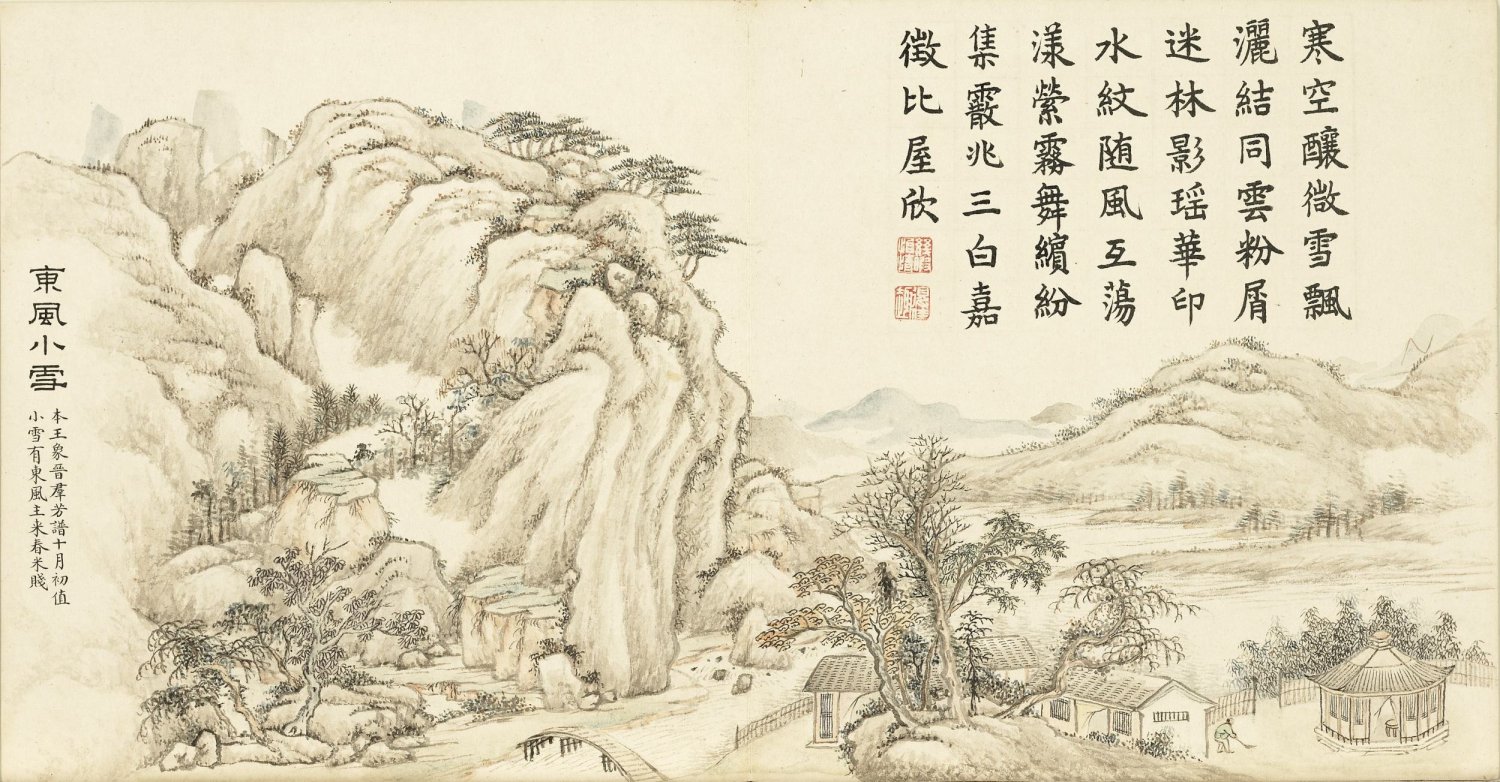 寒空釀微雪飄
灑結同雲粉屑
迷林影瑶華印
水紋随風互蕩
漾縈霧舞繽紛
集霰兆三白嘉
徵比屋欣
東風小雪
本王象晉羣芳譜十月初值
小雪有東風主来春米賤